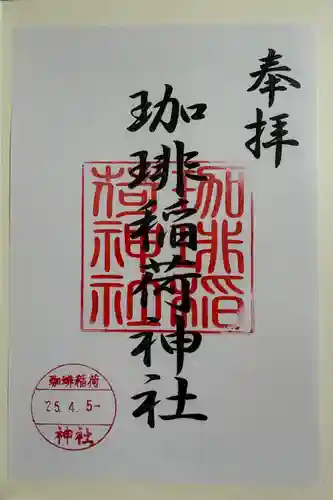 奉拝
珈琲稲荷神社
珈琲稲荷神社
珈琲稲荷
25. 4. 5-
神社